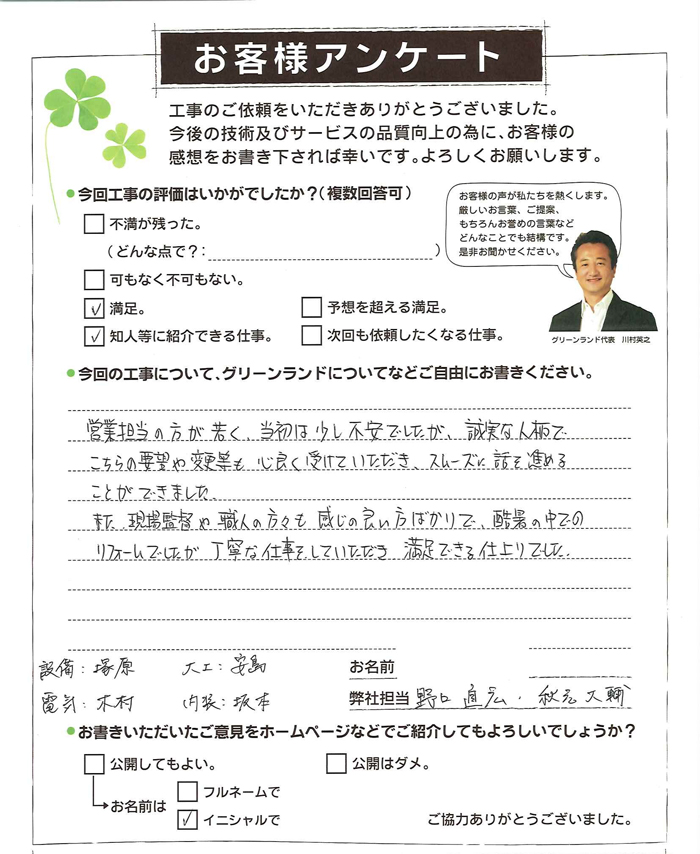 お客様アンケート
工事のご依頼をいただきありがとうございました。
今後の技術及びサービスの品質向上の為に、お客様の
感想をお書き下されば幸いです。よろしくお願いします。
●今回工事の評価はいかがでしたか?(複数回答可)
お客様の声が私たちを熱くします。
厳しいお言葉、ご提案、
もちろんお誉めの言葉など
どんなことでも結構です。
是非お聞かせください。
不満が残った。
(どんな点で?: )
可もなく不可もない。
満足。 予想を超える満足。
知人等に紹介できる仕事。 次回も依頼したくなる仕事。
グリーンランド代表 川村英之
●今回の工事について、グリーンランドについてなどご自由にお書きください。
営業担当の方が若く、当初は少し不安でしたが、誠実な人柄で
こちらの要望や変更等も心良く受けていただき、スムーズに話を進める
ことができました。
また、現場監督や職人の方々も感じの良い方ばかりで、酷暑の中での
リフォームでしたが丁寧な仕事をしていただき満足できる仕上りでした。
設備:塚原 大工:安島 お名前
電気:木村 内装:坂本 弊社担当 野口直広・秋元大輔
●お書きいただいたご意見をホームページなどでご紹介してもよろしいでしょうか?
公開してもよい。 公開はダメ。
お名前は フルネームで
イニシャルで
ご協力ありがとうございました。